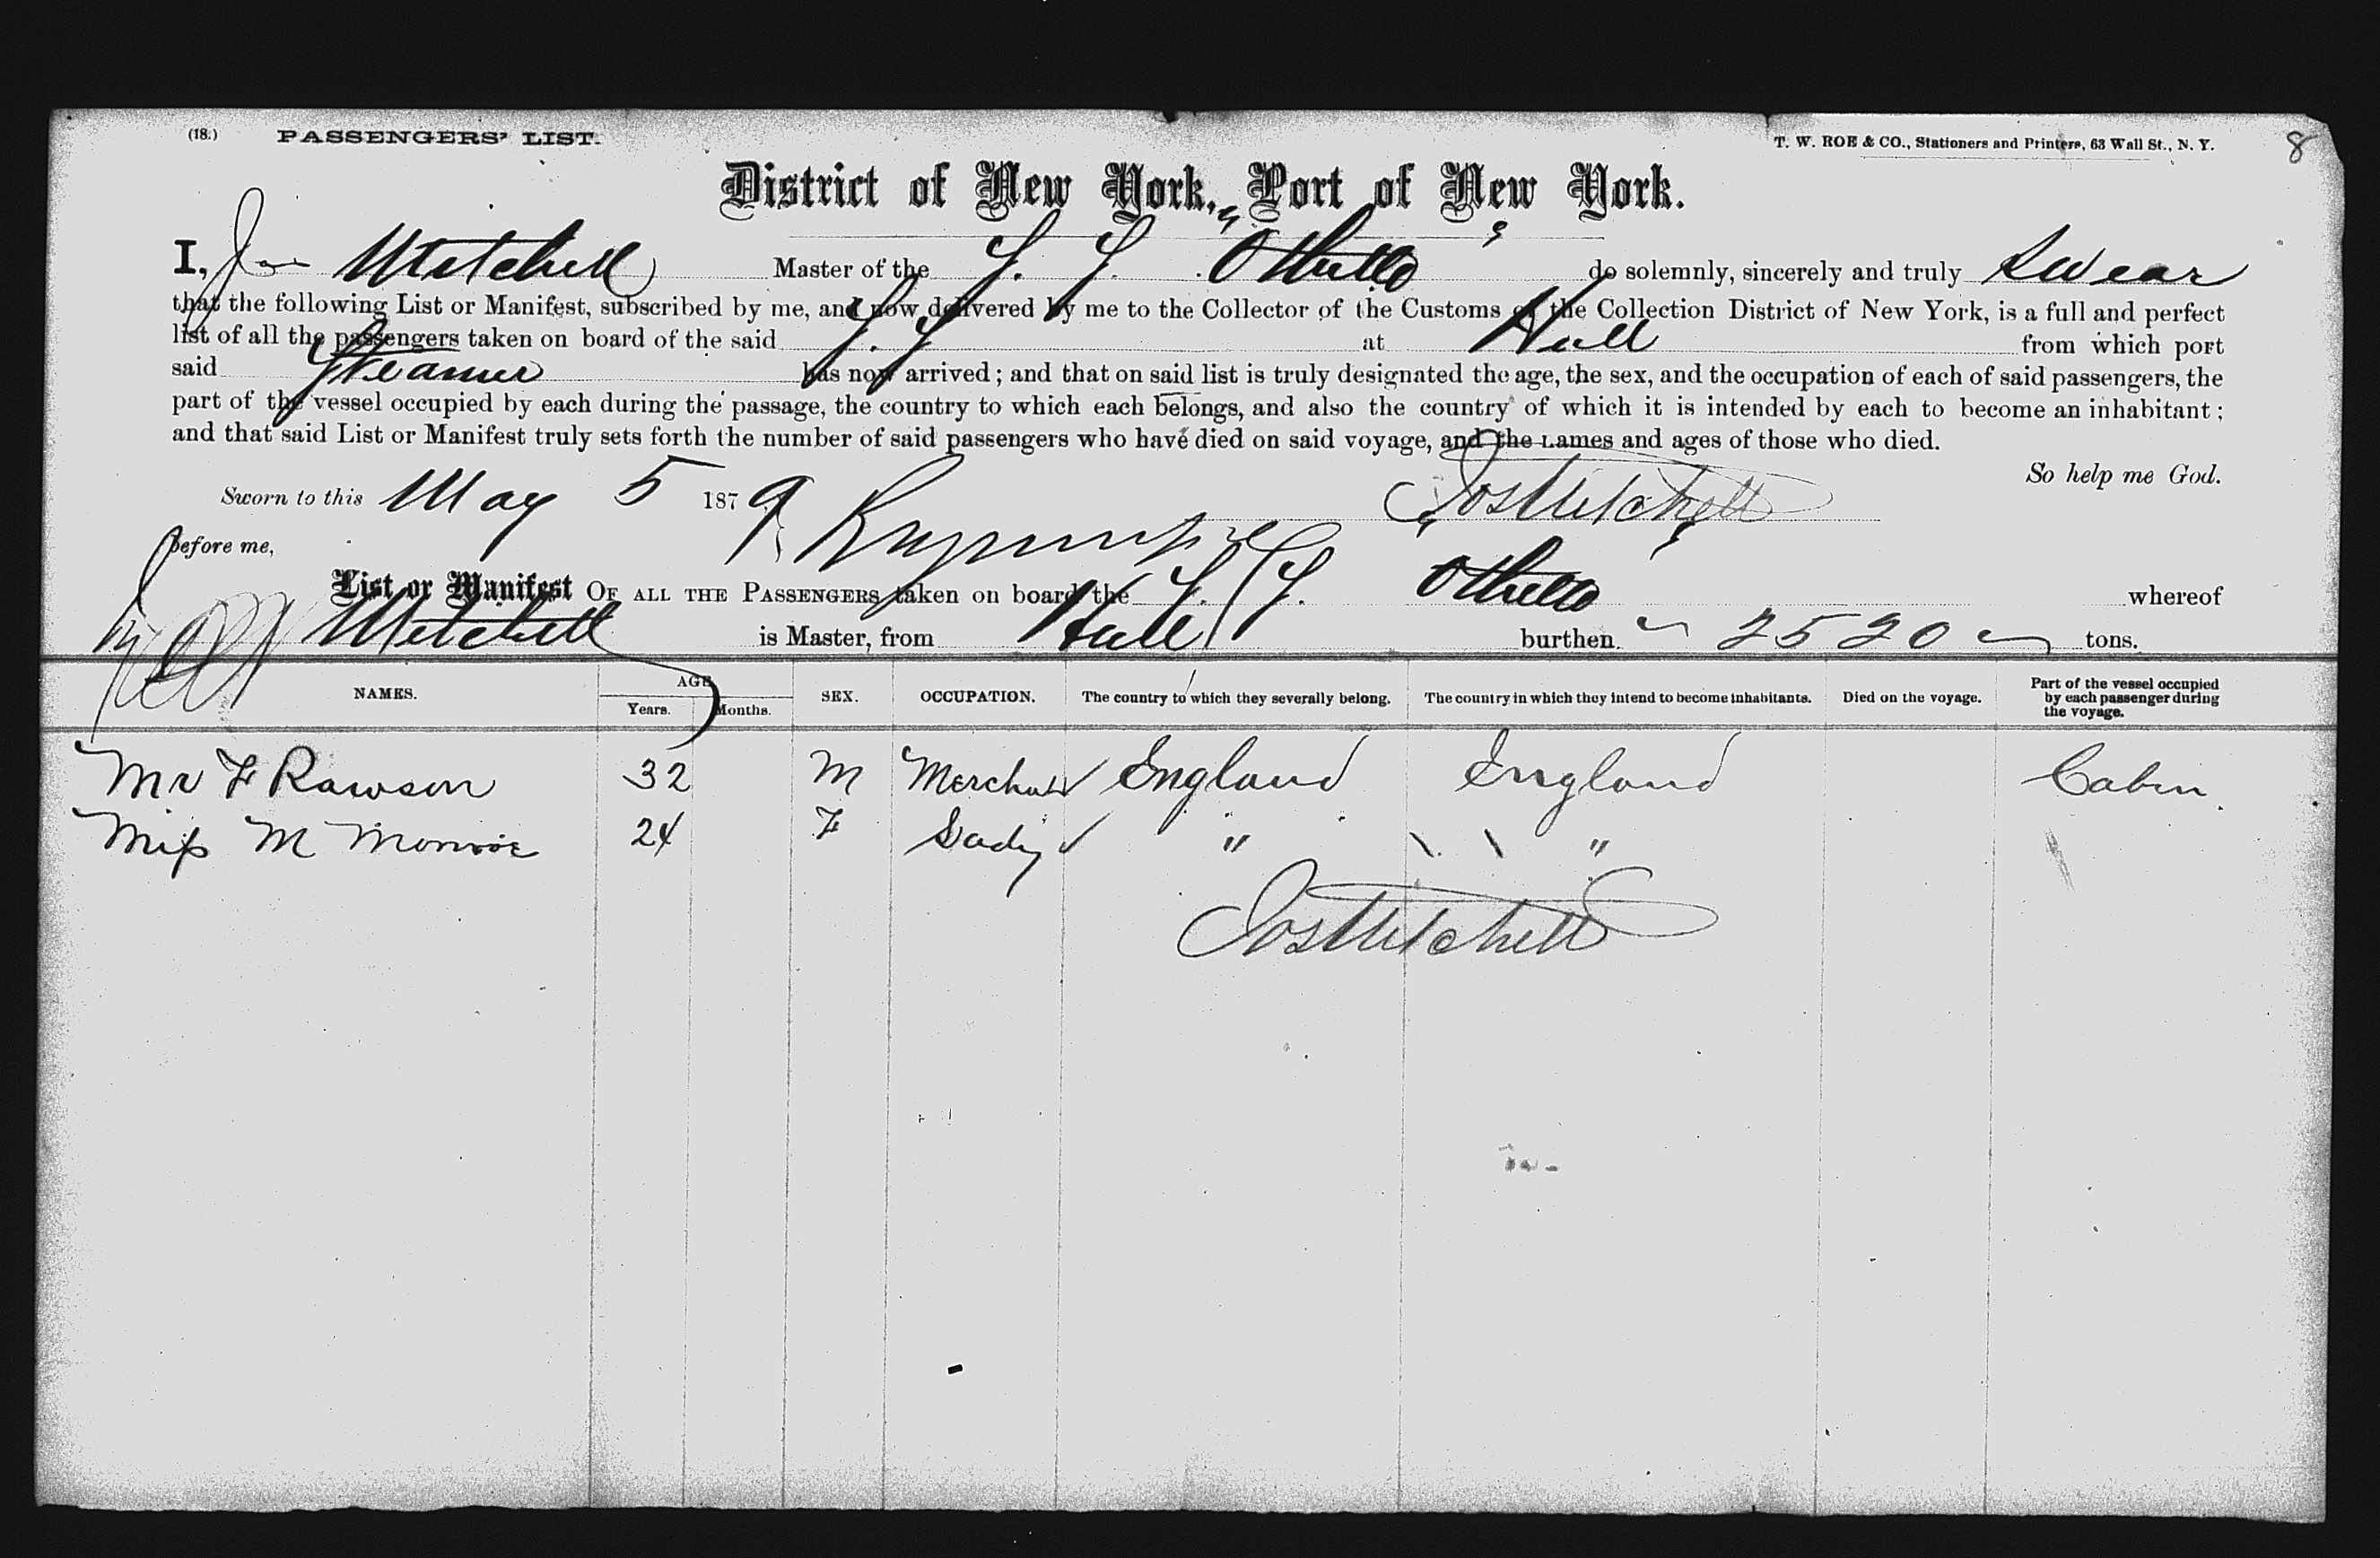 (18.) PASSENGERS' LIST. T. W. ROE & CO., Stationers and Printers, 63 Wall St., N. Y. 8
District of New York, Port of New York.
I, Jos Mitchell Master of the S. S. "Othello" do solemnly, sincerely and truly swear
that the following List or Manifest, subscribed by me, and now delivered by me to the Collector of the Customs of the Collection District of New York, is a full and perfect
list of all the passengers taken on board of the said S. S at Hull from which port
said Steamer has now arrived; and that on said list is truly designated the age, the sex, and the occupation of each of said passengers, the
part of the vessel occupied by each during the passage, the country to which each belongs, and also the country of which it is intended by each to become an inhabitant;
and that said List or Manifest truly sets forth the number of said passengers who have died on said voyage, and the names and ages of those who died.
So help me God.
Sworn to this May 5 1879 Jos Mitchell
Before me,
List or Manifest OF ALL THE PASSENGERS taken on board the S. S. "Othello" whereof
Mitchell is Master, from Hull burthen 2520 tons.
NAMES. AGE Years. Months. SEX. OCCUPATION. The country to which they severally belong. The country in which they intend to become inhabitants. Died on the voyage. Part of the vessel occupied by each passenger during the voyage.
Mr F Rawson 32 M Merchant England England Cabin.
Miss M Monroe 24 F Lady " "
Jos Mitchell